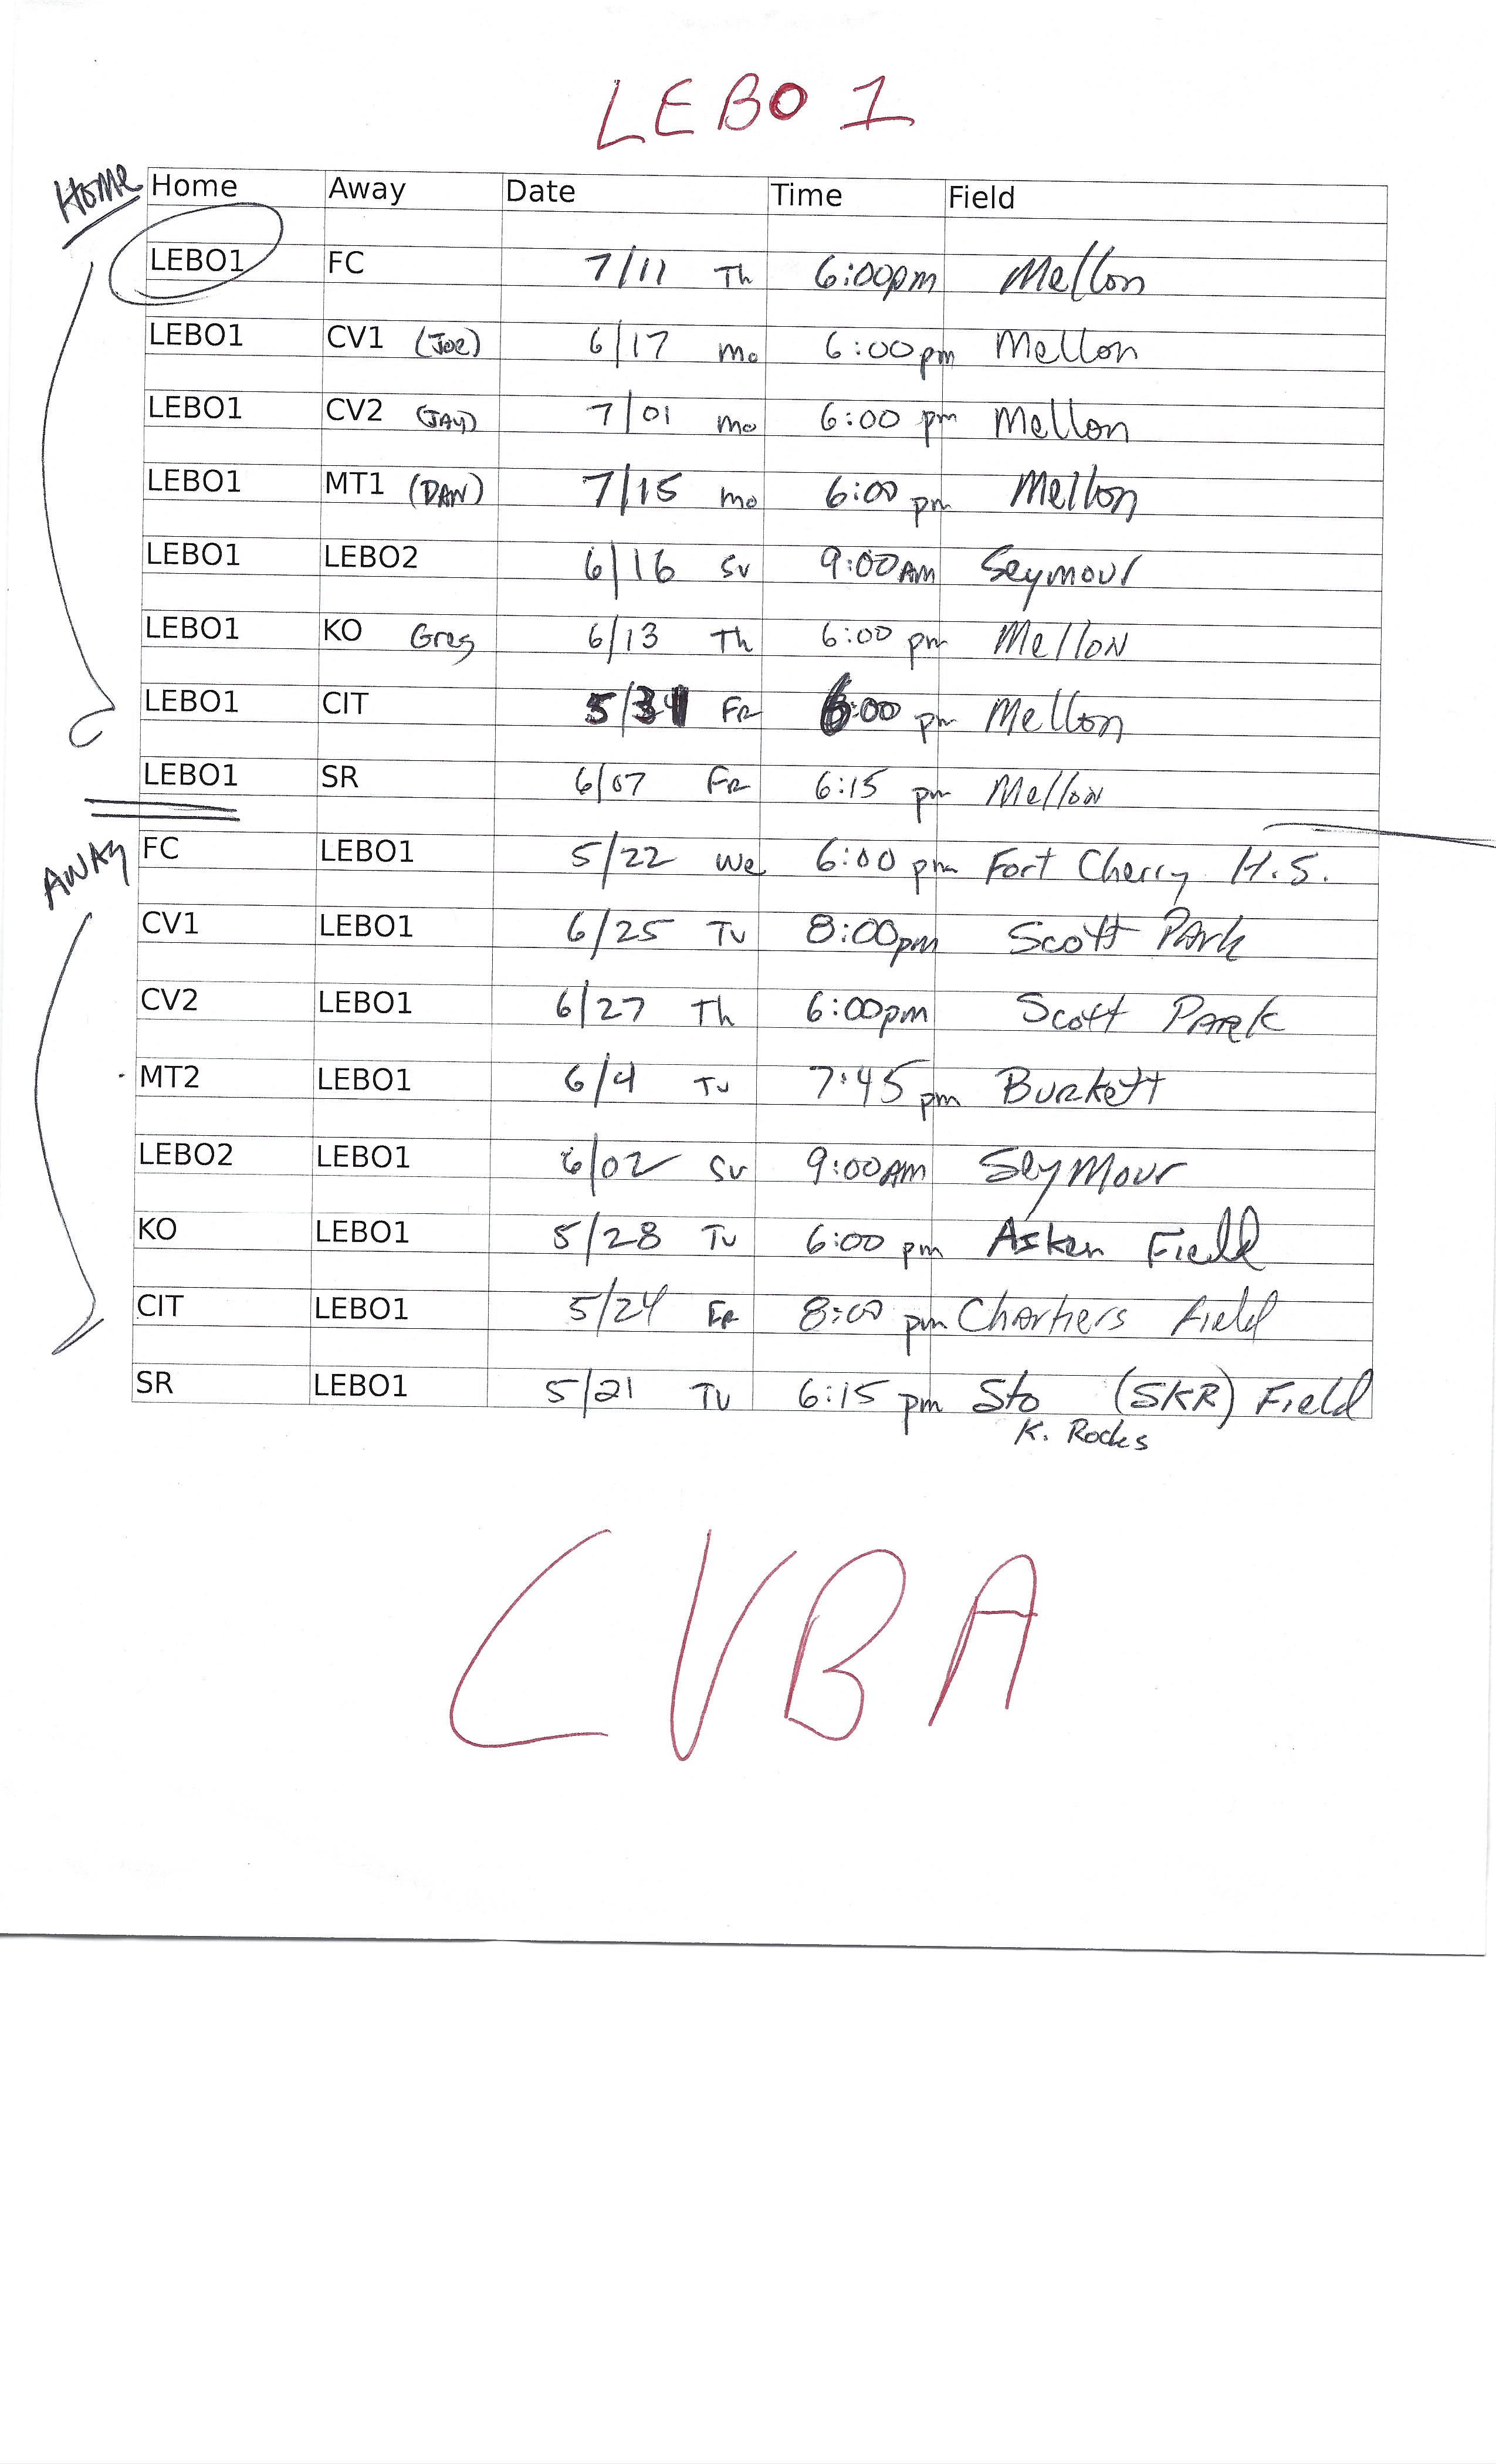 LEBO 1
HOME Home Away Date Time Field
LEBO1 FC 7/11 Th 6:00pm Mellon
LEBO1 CV1 (JOE) 6/17 Mo 6:00pm Mellon
LEBO1 CV2 (JAY) 7/01 Mo 6:00 pm Mellon
LEBO1 MT1 (DAN) 7/15 Mo 6:00 pm Mellon
LEBO1 LEBO2 6/16 Su 9:00AM Seymour
LEBO1 KO Greg 6/13 Th 6:00 pm Mellon
LEBO1 CIT 5/31 FR 6:00 pm Mellon
LEBO1 SR 6/07 FR 6:15 pm Mellon
AWAY FC LEBO1 5/22 We 6:00 pm Fort Cherry H.S.
CV1 LEBO1 6/25 Tu 8:00pm Scott Park
CV2 LEBO1 6/27 Th 6:00pm Scott PARK
MT2 LEBO1 6/4 Tu 7:45 pm Burkett
LEBO2 LEBO1 6/02 Su 9:00AM Seymour
KO LEBO1 5/28 Tu 6:00 pm Field
CIT LEBO1 5/24 FR 8:00 pm Chartiers Field
SR LEBO1 5/21 TU 6:15 pm Sto (SKR) Field
K. Rocks
CVBA